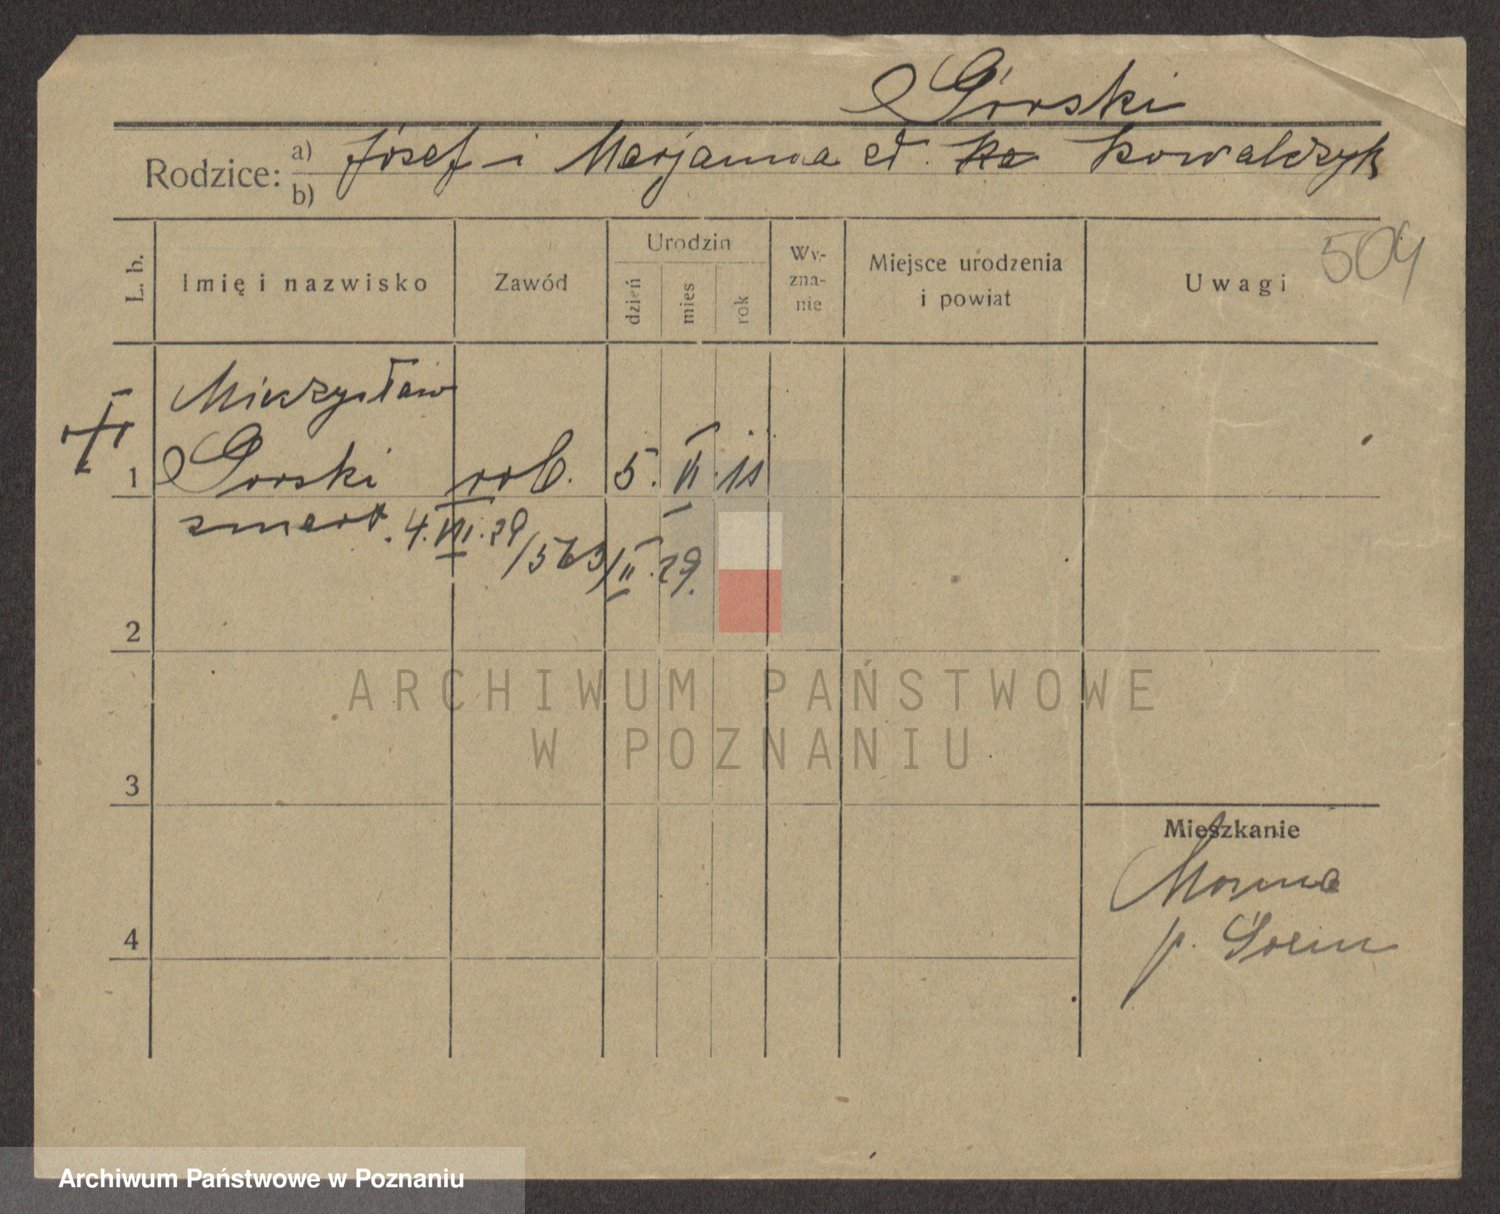 Górski
Rodzice: a) Józef i Marjanna cł. ka Kowalczyk
b)
L. b.
Imię i nazwisko
Zawód
Urodzin
dzień
mies
rok
Wy-
zna-
nie
Miejsce urodzenia
i powiat
Uwagi
504
Mieczysław
1 Górski rob. 5. VI. 11
zmarł. 4. VII. 29 /563/II. 29.
2
3
4
Mieszkanie
Mosina
p. Śrem
ARCHIWUM PAŃSTWOWE
W POZNANIU
Archiwum Państwowe w Poznaniu